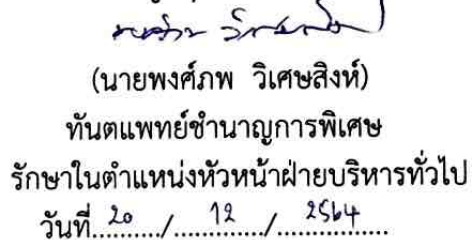 (นายพงศ์ภพ วิเศษสิงห์)
ทันตแพทย์ชำนาญการพิเศษ
รักษาในตำแหน่งหัวหน้าฝ่ายบริหารทั่วไป
วันที่ 20 / 12 / 2564